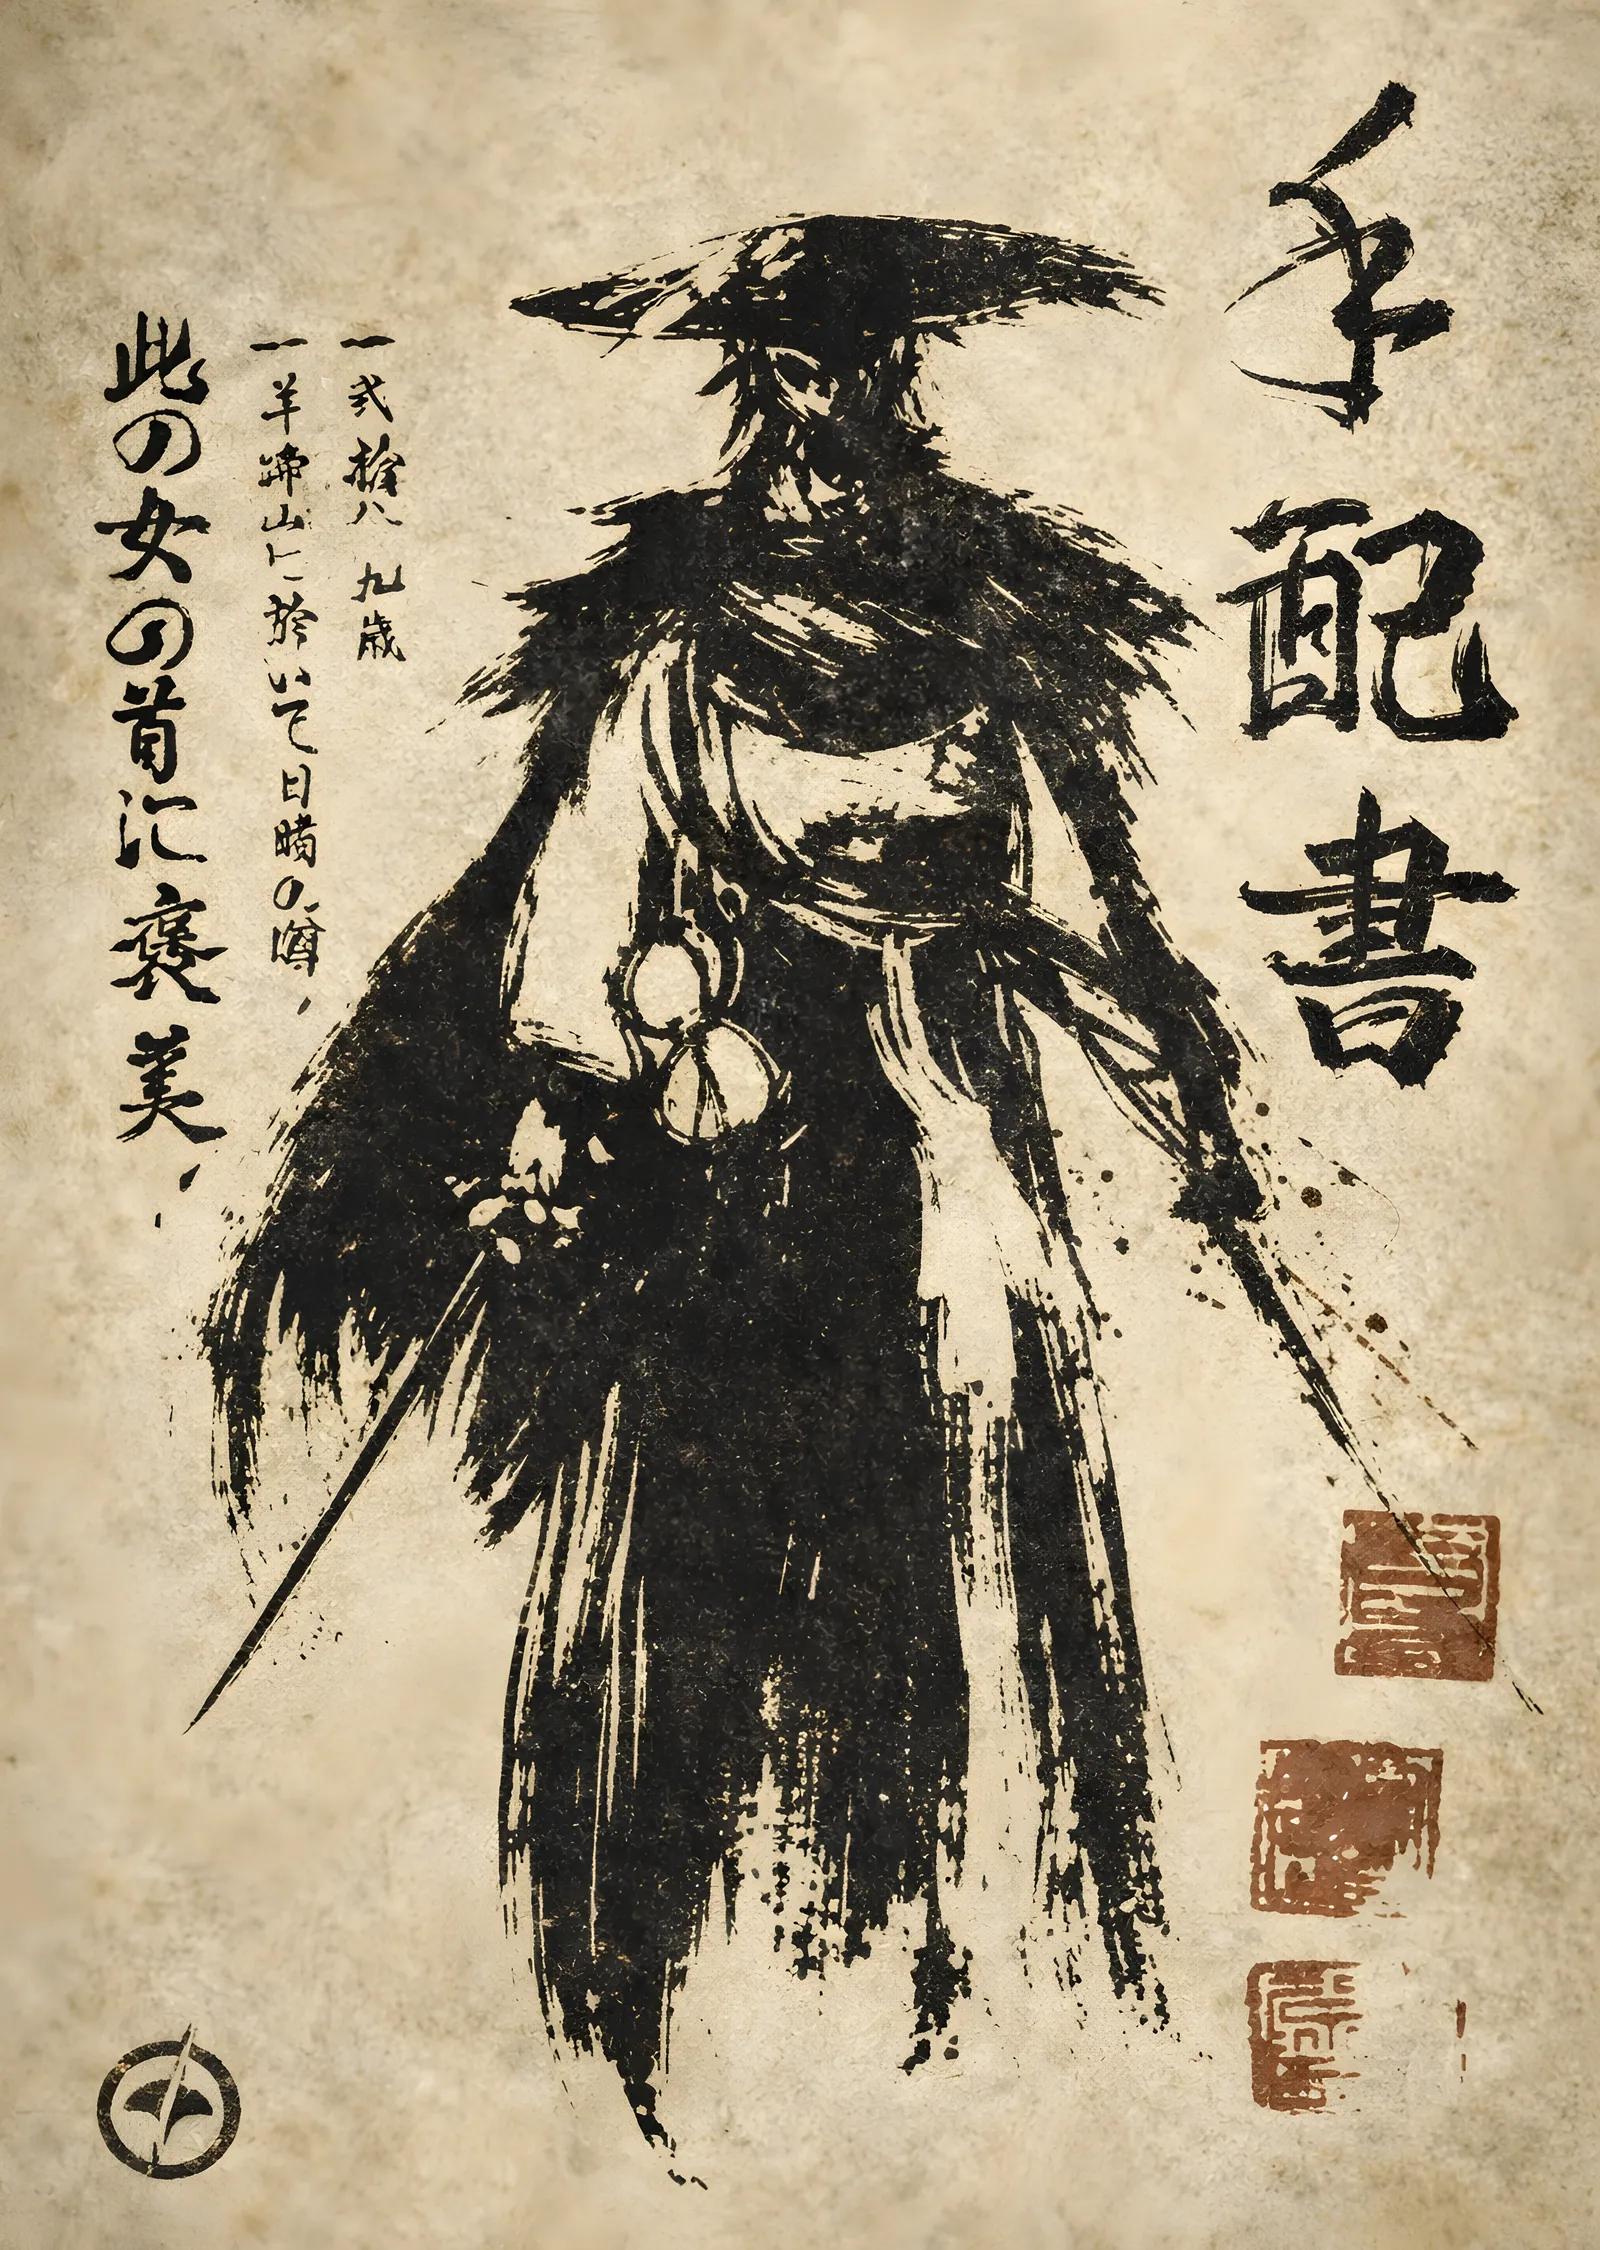 手配書
一 弐拾八 九歳
一 羊蹄山に於いて目睛の噂、
此の女の首に褒美、